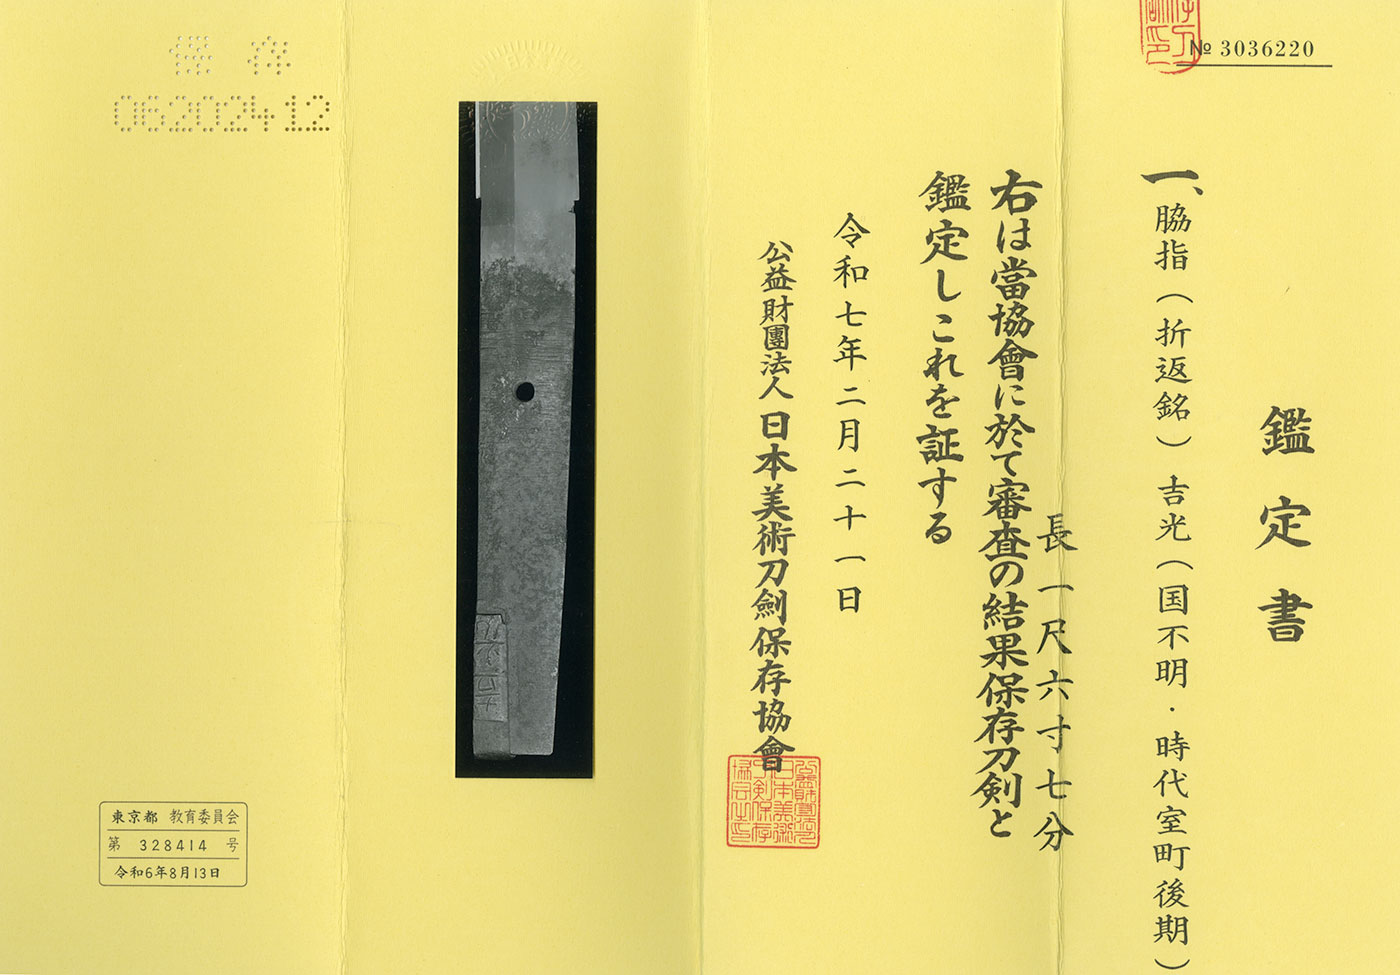 № 3036220
鑑定書
一、脇指（折返銘）吉光（国不明・時代室町後期）
長一尺六寸七分
右は當協會に於て審査の結果保存刀剣と
鑑定しこれを証する
令和七年二月二十一日
公益財團法人日本美術刀劍保存協會
吉光
保存
06202412
東京都 教育委員会
第 328414 号
令和6年8月13日